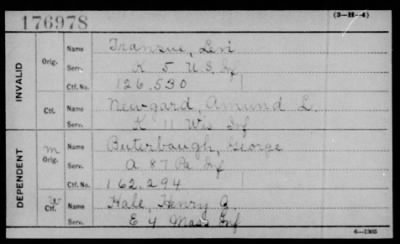 176978
(3-H-4)
INVALID
Orig. Name Transue, Levi
Serv. K 5 U.S. Inf
Ctf. No. 126,530
Ctf. Name Newgard, Amund L.
Serv. K 11 Wis Inf
DEPENDENT
m Orig. Name Buterbaugh, George
Serv. A 87 Pa Inf
Ctf. No. 162,294
W Ctf. Name Hale, Henry G.
Serv. E 4 Mass Inf
6—1305